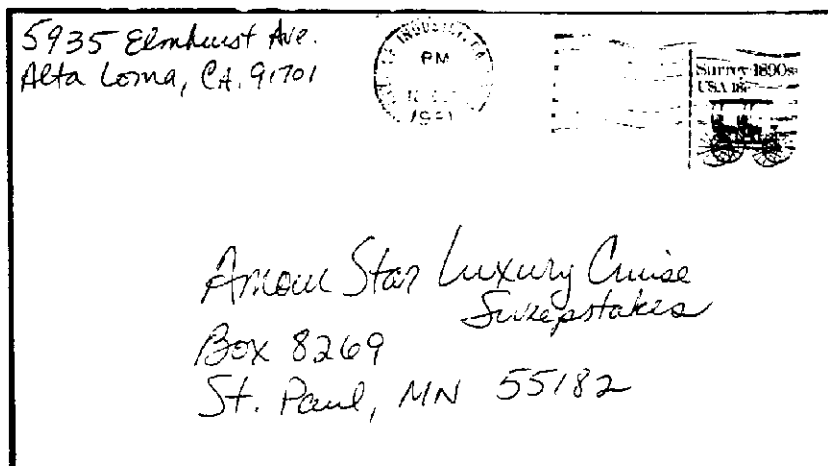 5935 Elmhurst Ave.
Alta Loma, CA. 91701
INDUSTRY, CA
PM
1981
Surrey 1890s
USA 18c
Amour Star Luxury Cruise
Sweepstakes
Box 8269
St. Paul, MN 55182